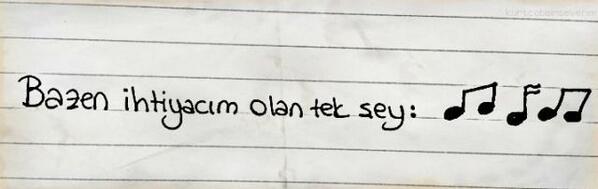 kurtcobainseverim
Bazen ihtiyacım olan tek sey: ♫ ♬ ♫